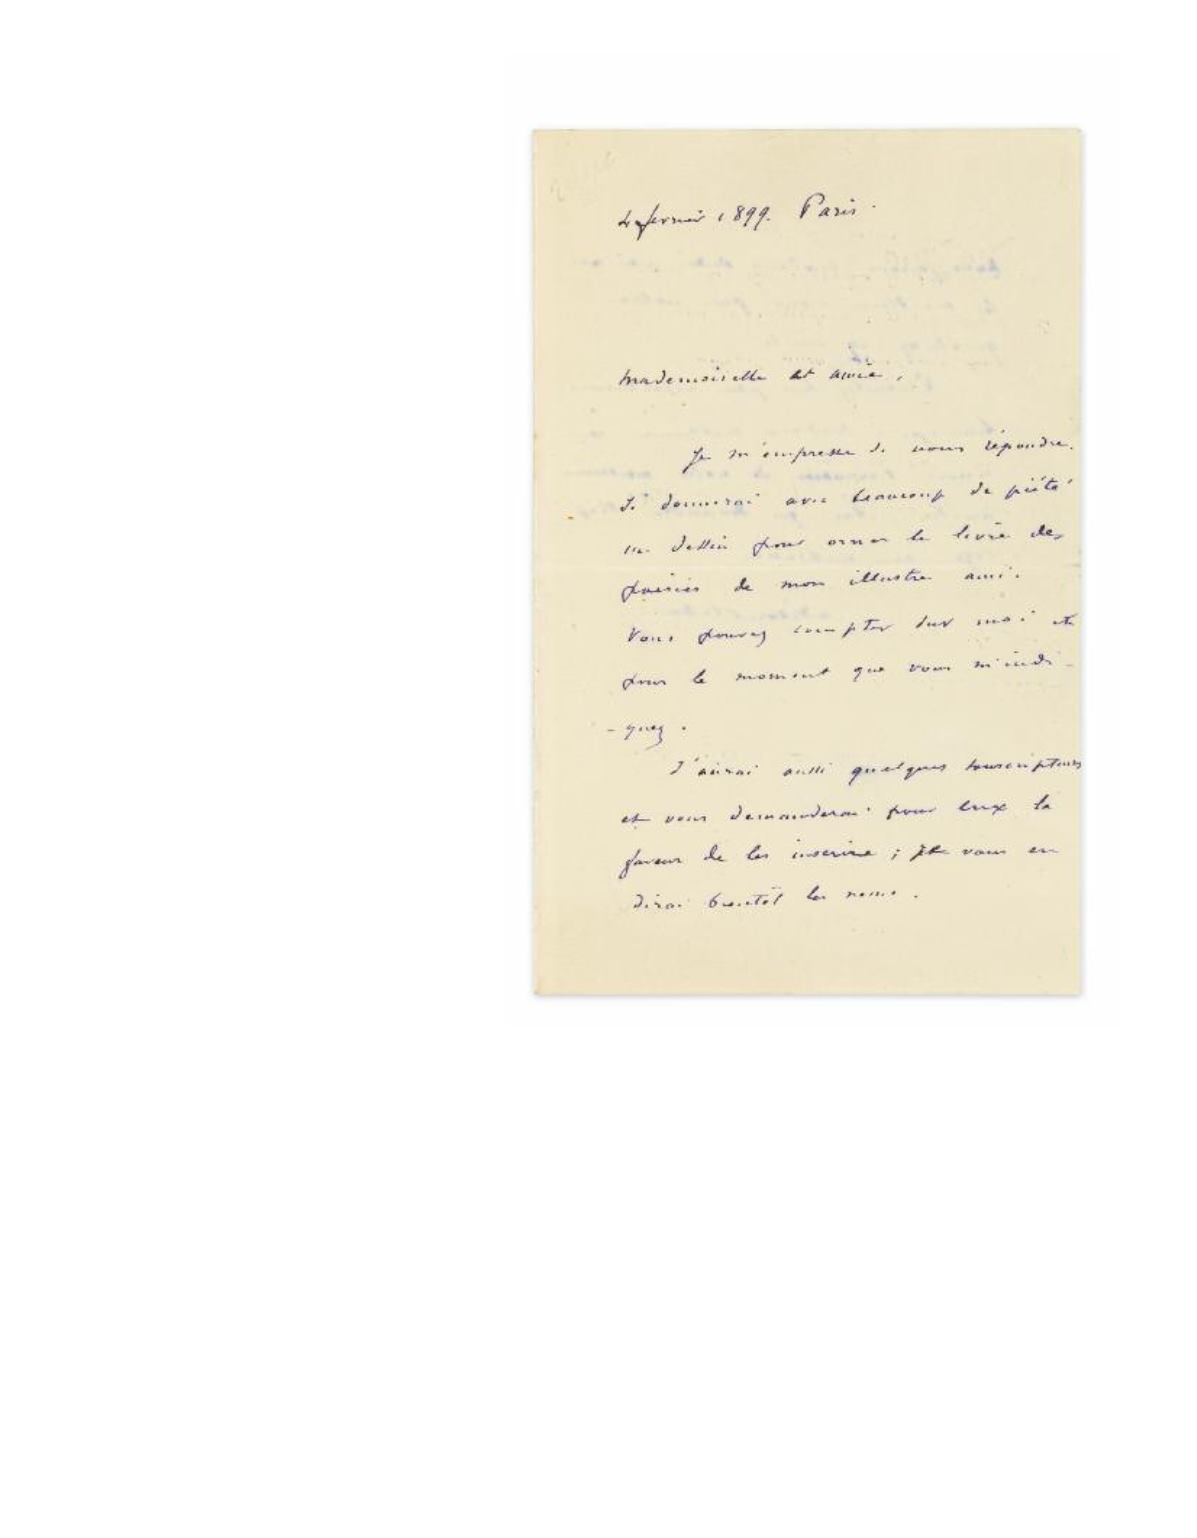 4 fevrier 1899. Paris.
Mademoiselle et amie,
Je m'empresse de vous répondre.
Je donnerai avec beaucoup de piété
un dessin pour orner le livre des
poésies de mon illustre ami.
Vous pouvez compter sur moi et
pour le moment que vous m'indi-
-quez.
J'aurai aussi quelques souscripteurs
et vous demanderai pour eux la
faveur de les inscrire ; je vous en
dirai bientôt les noms.